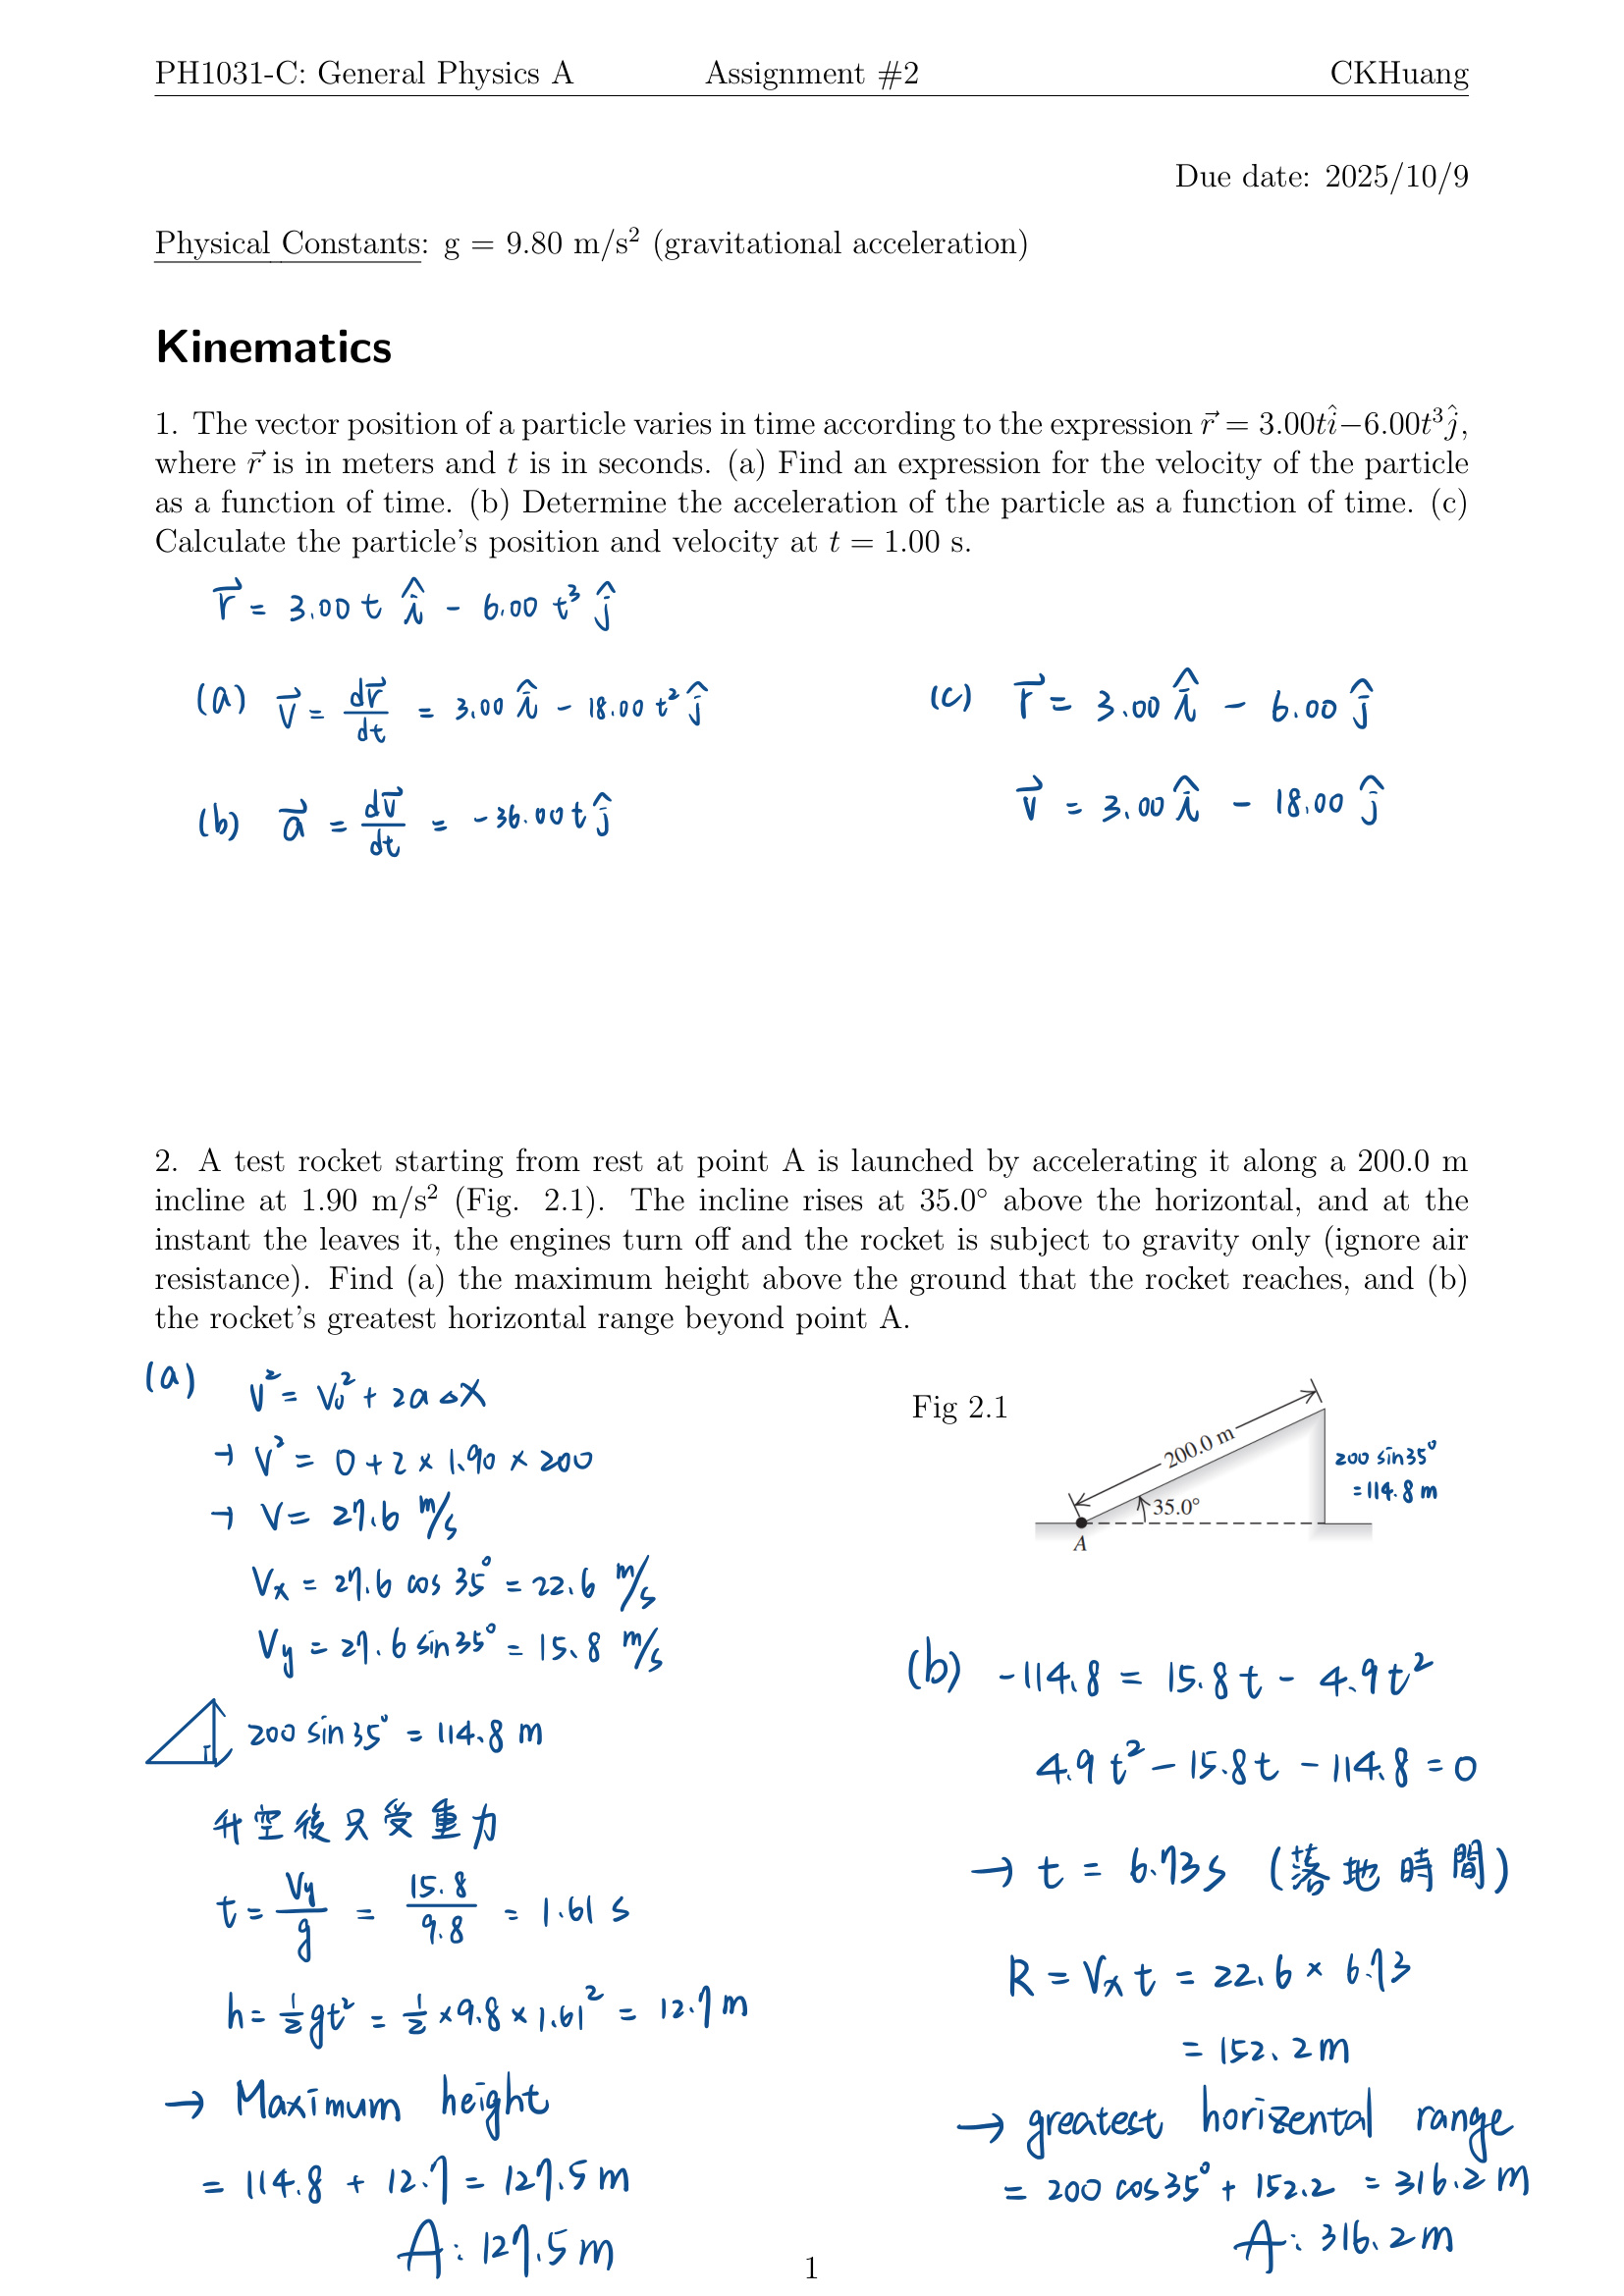 PH1031-C: General Physics A Assignment #2 CKHuang
Due date: 2025/10/9
Physical Constants: g = 9.80 m/s² (gravitational acceleration)
Kinematics
1. The vector position of a particle varies in time according to the expression r⃗ = 3.00tî−6.00t³ĵ,
where r⃗ is in meters and t is in seconds. (a) Find an expression for the velocity of the particle
as a function of time. (b) Determine the acceleration of the particle as a function of time. (c)
Calculate the particle's position and velocity at t = 1.00 s.
r⃗ = 3.00 t î - 6.00 t³ ĵ
(a) v⃗ = dr⃗/dt = 3.00 î - 18.00 t² ĵ
(b) a⃗ = dv⃗/dt = -36.00 t ĵ
(c) r⃗ = 3.00 î - 6.00 ĵ
v⃗ = 3.00 î - 18.00 ĵ
2. A test rocket starting from rest at point A is launched by accelerating it along a 200.0 m
incline at 1.90 m/s² (Fig. 2.1). The incline rises at 35.0° above the horizontal, and at the
instant the leaves it, the engines turn off and the rocket is subject to gravity only (ignore air
resistance). Find (a) the maximum height above the ground that the rocket reaches, and (b)
the rocket's greatest horizontal range beyond point A.
(a) V² = V₀² + 2a△X
→ V² = 0 + 2 × 1.90 × 200
→ V = 27.6 m/s
Vx = 27.6 cos 35° = 22.6 m/s
Vy = 27.6 sin 35° = 15.8 m/s
200 sin 35° = 114.8 m
升空後只受重力
t = Vy/g = 15.8/9.8 = 1.61 s
h = ½gt² = ½ × 9.8 × 1.61² = 12.7 m
→ Maximum height
= 114.8 + 12.7 = 127.5 m
A: 127.5 m
Fig 2.1
200.0 m
35.0°
A
200 sin 35°
= 114.8 m
(b) -114.8 = 15.8 t - 4.9 t²
4.9 t² - 15.8 t - 114.8 = 0
→ t = 6.73 s (落地時間)
R = Vx t = 22.6 × 6.73
= 152.2 m
→ greatest horizental range
= 200 cos 35° + 152.2 = 316.2 m
A: 316.2 m
1